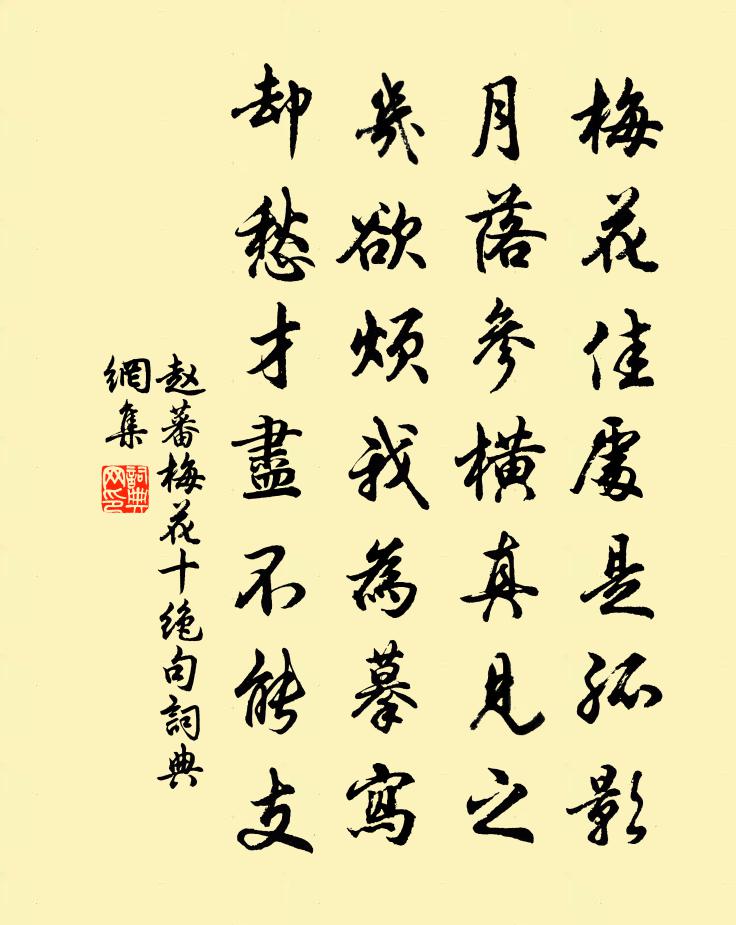 梅花佳處是孤影
月落參橫真見之
幾欲煩我為摹寫
却愁才盡不能支
赵蕃梅花十絶句詞典
網集
詞典
网印